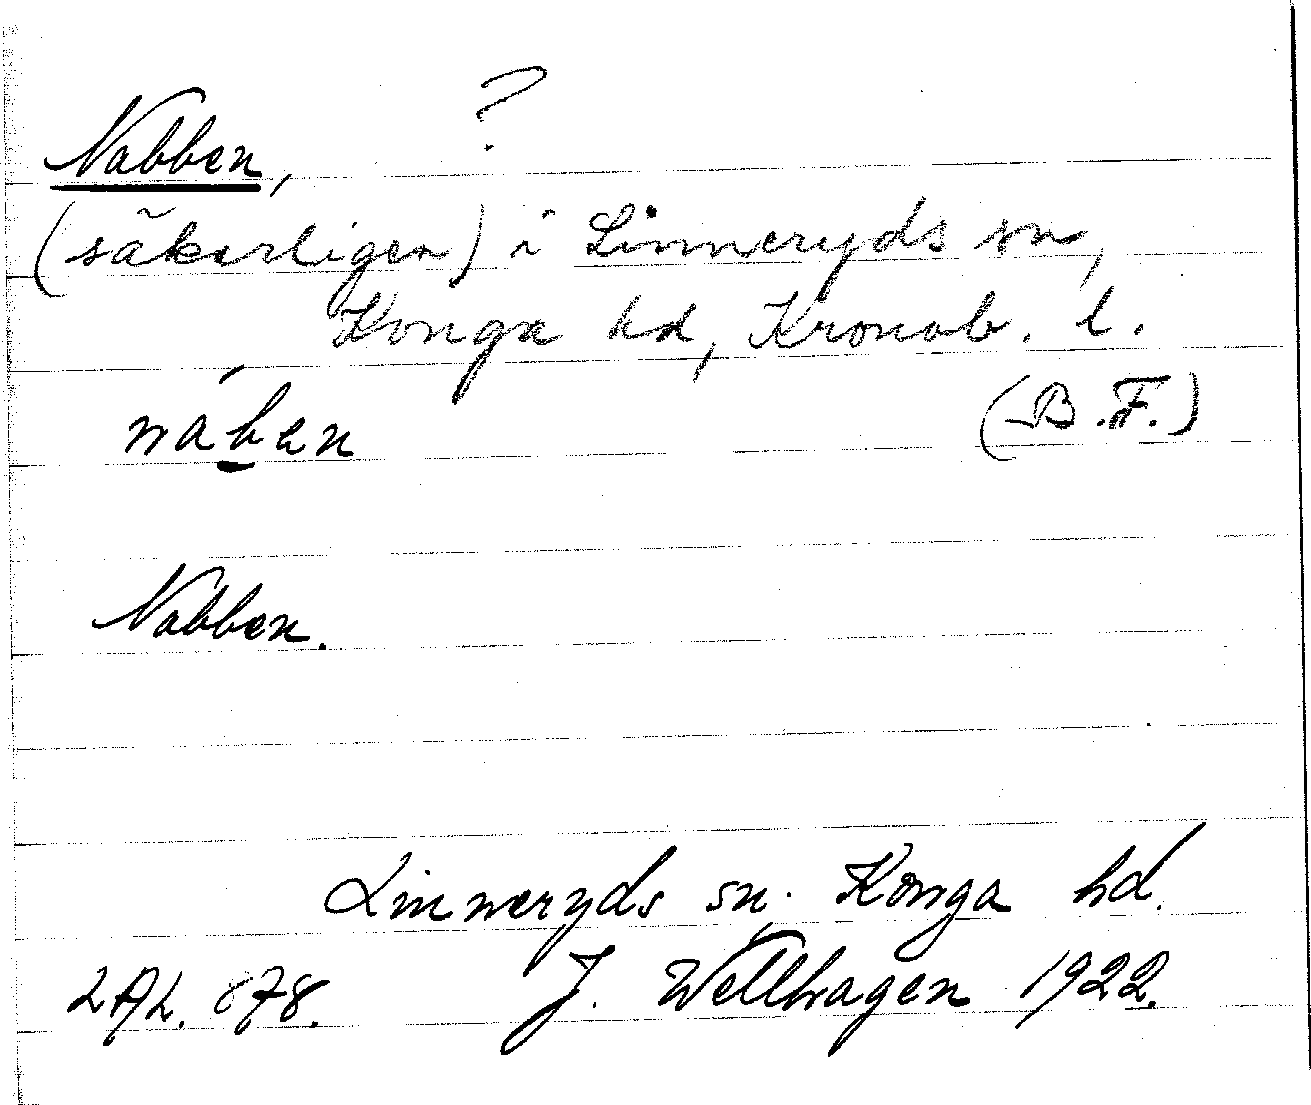 ?
Nabben,
(säkerligen) i Linneryds sn,
Konga hd, Kronob. l.
(B.F.)
náḇen
Nabben.
Linneryds sn. Konga hd.
LAL. 878. J. Wellhagen 1922.